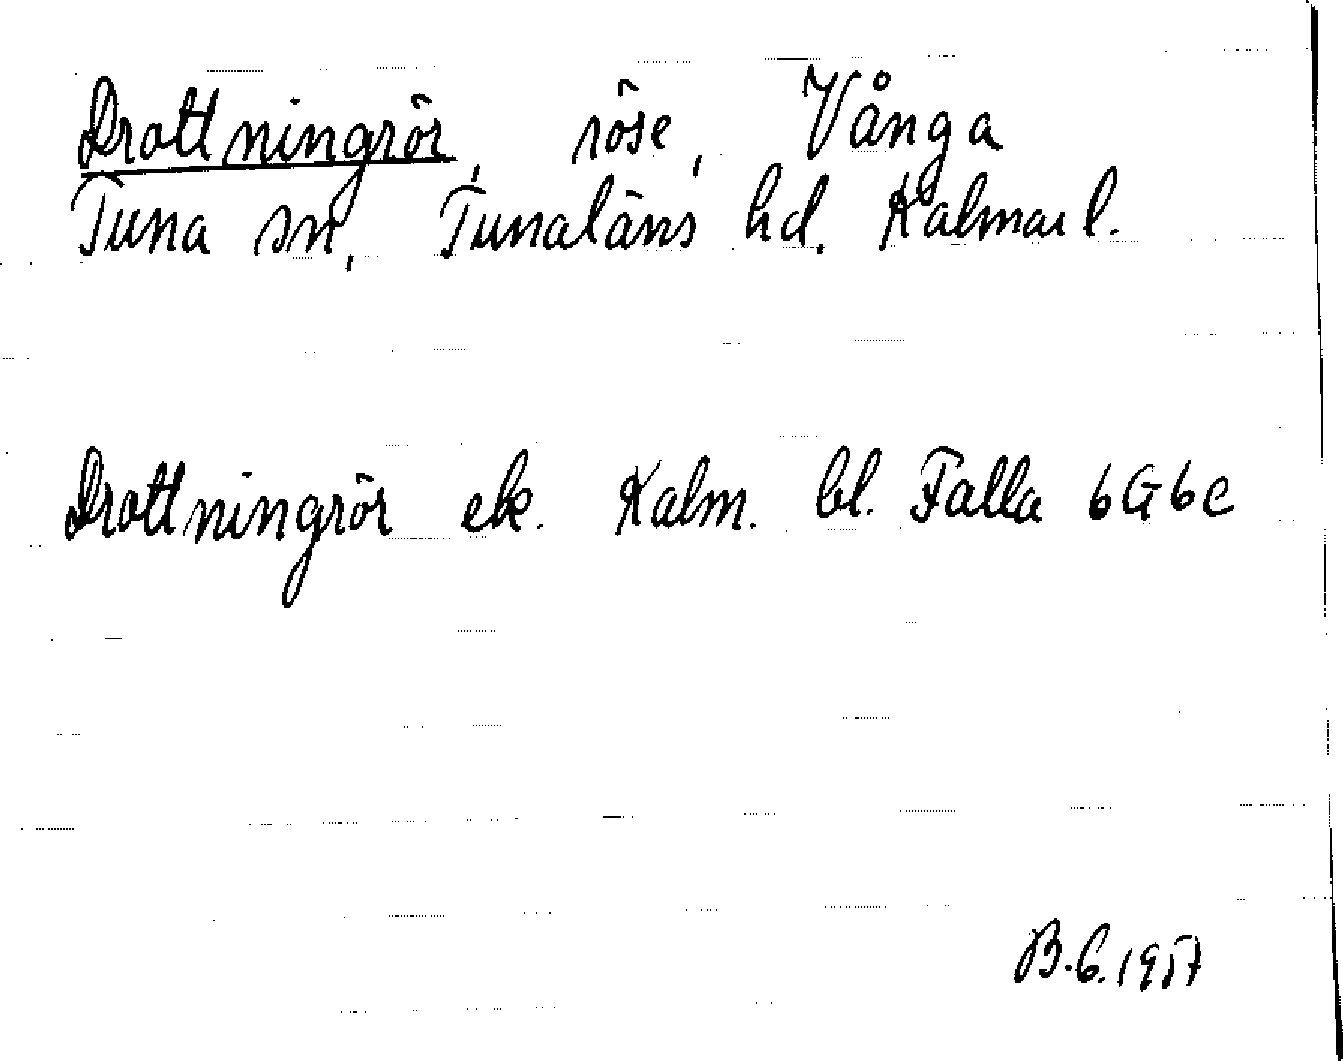 Drottningrör, röse, Vånga
Tuna sn, Tunaläns hd. Kalmar l.
Drottningrör ek. Kalm. bl. Falla 6G6c
B.G. 1957